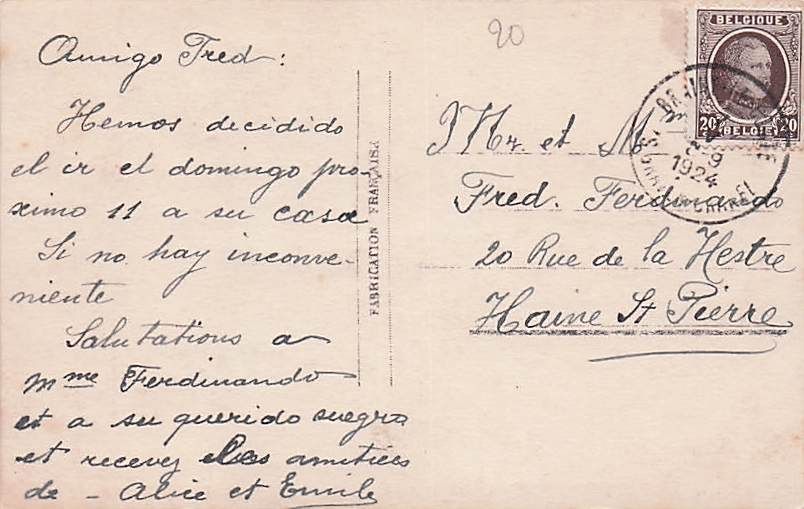 20
BELGIQUE
20 BELGIE 20
1924
Amigo Fred:
Hemos decidido
el ir el domingo pro-
ximo 11 a su casa
Si no hay inconve-
niente
Salutations a
Mme Ferdinando
et a su querido suegro
et recevez les amitiées
de - Alice et Emile
FABRICATION FRANÇAISE
Mr. et M
Fred. Ferdinando
20 Rue de la Hestre
Haine St Pierre